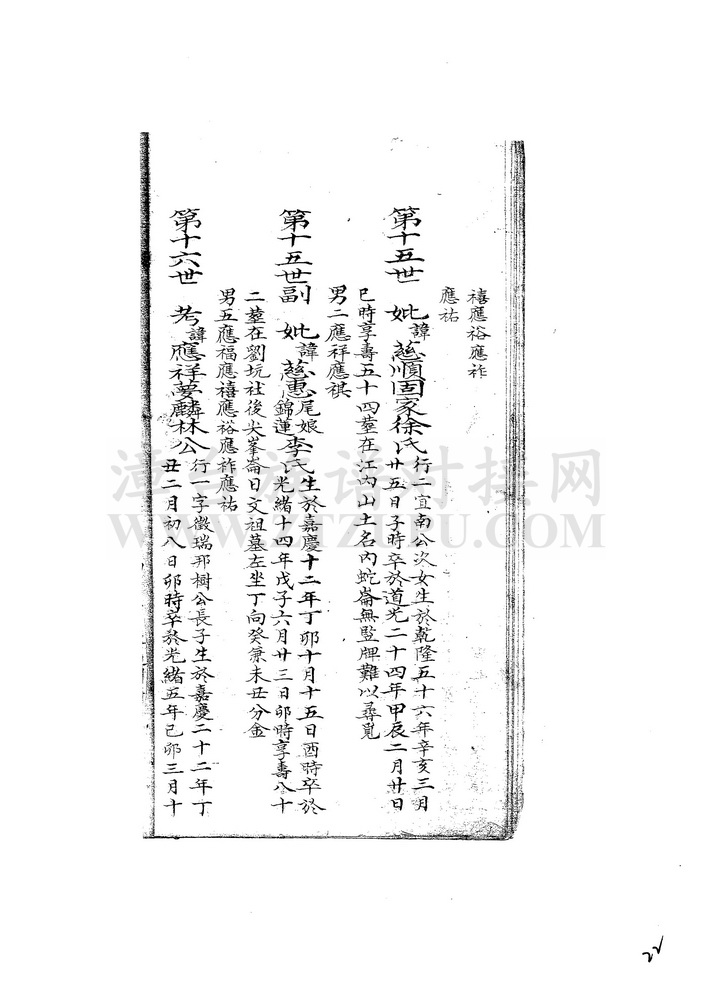 禧應裕應祚
應祐
第十五世 妣諱慈順固家徐氏行二宜南公次女生於乾隆五十六年辛亥三月
廿五日子時卒於道光二十四年甲辰二月廿日
巳時享壽五十四塟在江內山土名內蛇崙無監牌難以尋覓
男二應祥應祺
第十五世副 妣諱慈惠尾娘錦蓮李氏生於嘉慶十二年丁卯十月十五日酉時卒於
光緒十四年戊子六月廿三日卯時享壽八十
二塟在劉坑社後尖峯崙日文祖墓左坐丁向癸兼未丑分金
男五應福應禧應裕應祚應祐
第十六世 考諱應祥夢麟林公行一字徵瑞那樹公長子生於嘉慶二十二年丁
丑二月初八日卯時卒於光緒五年己卯三月十
漳台族谱对接网
WWW.ZTZUPU.COM